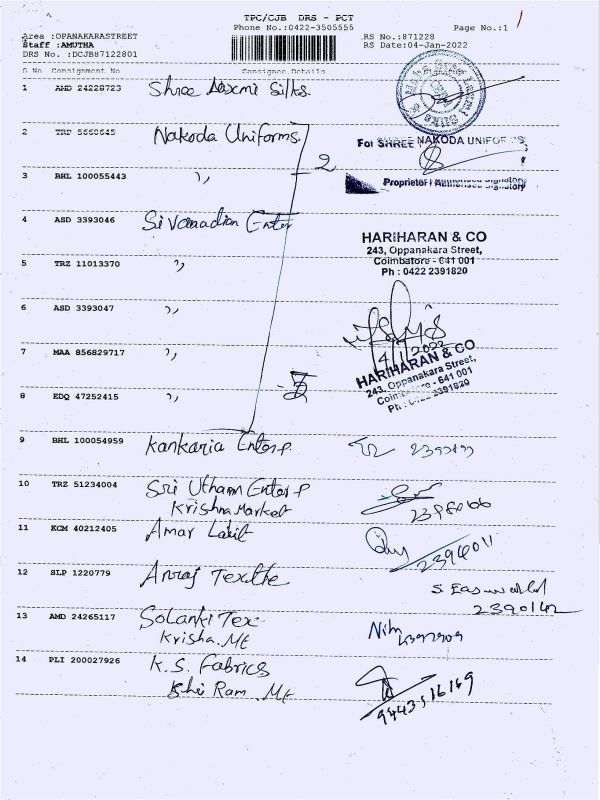 TPC/CJB DRS - PCT
Phone No.:0422-3505555
Page No.:1
Area :OPANAKARASTREET
Staff :AMUTHA
DRS No. :DCJB87122801
RS No.:871228
RS Date:04-Jan-2022
S No Consignment No Consignee Details
1 AMD 24228723 Shree Laxmi Silks
2 TRP 5660645 Nakoda Uniforms
For SHREE NAKODA UNIFORMS
2
3 BHL 100055443 ,,
Proprietor / Authorised Signatory
4 ASD 3393046 Sivanadian Enter
HARIHARAN & CO
243, Oppanakara Street,
Coimbatore - 641 001
Ph : 0422 2391820
5 TRZ 11013370 ,,
6 ASD 3393047 ,,
7 MAA 856829717 ,,
4/1/2022
HARIHARAN & CO
243, Oppanakara Street,
Coimbatore - 641 001
Ph : 0422 2391820
8 EDQ 47252415 ,,
9 BHL 100054959 Kankaria Enterp.
10 TRZ 51234004 Sri Utham Enterp
Krishna Market
11 KCM 40212405 Amar Lalit
2394011
12 SLP 1220779 Anraj Textile
S Easwaral
2390142
13 AMD 24265117 Solanki Tex
Krisha. Mt
14 PLI 200027926 K.S. Fabrics
Shi Ram Mt